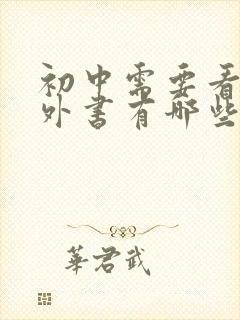 初中需要看
外书有哪些
華君武